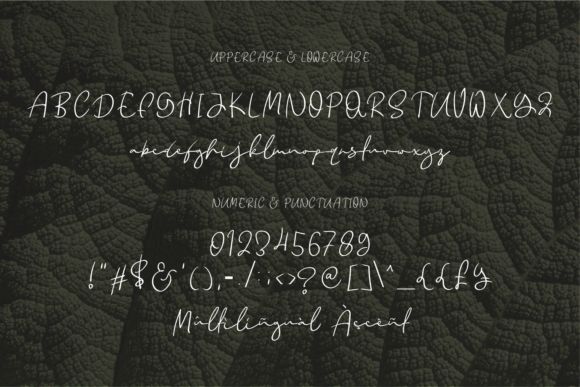 UPPERCASE & LOWERCASE
ABCDEFGHIJKLMNOPQRSTUVWXYZ
abcdefghijklmnopqrstuvwxyz
NUMERIC & PUNCTUATION
0123456789
!"#$&'(),-./:;<>?@[]\^_{{£}
Multilingual Àccent